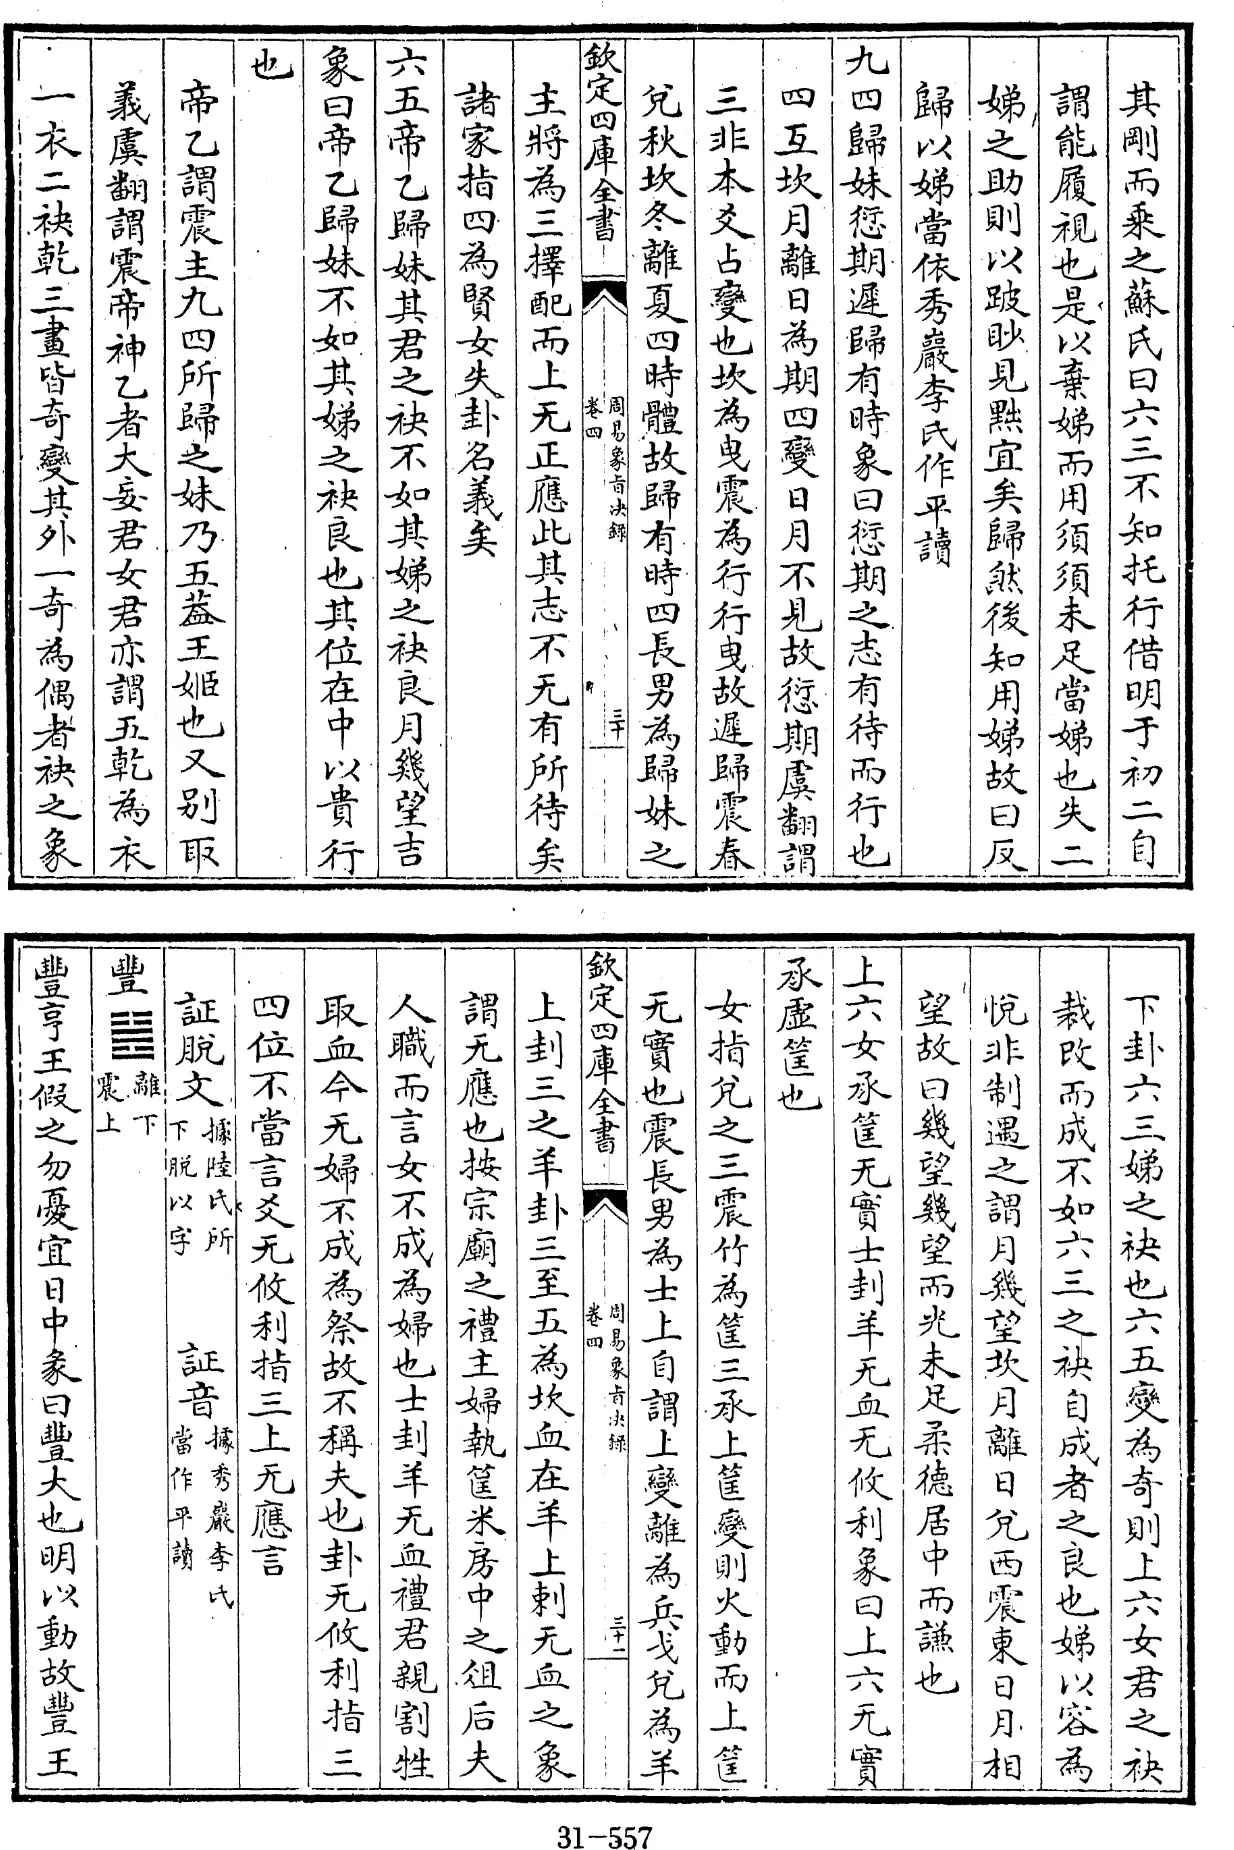 其剛而乘之蘇氏曰六三不知托行借明于初二自
謂能履視也是以棄娣而用須須未足當娣也失二
娣之助則以跛眇見黜宜矣歸然後知用娣故曰反
歸以娣當依秀巖李氏作平讀
九四歸妹愆期遲歸有時象曰愆期之志有待而行也
四互坎月離日為期四變日月不見故愆期虞翻謂
三非本爻占變也坎為曵震為行行曵故遲歸震春
兌秋坎冬離夏四時體故歸有時四長男為歸妹之
欽定四庫全書
周易象旨決錄
卷四
三十
主將為三擇配而上无正應此其志不无有所待矣
諸家指四為賢女失卦名義矣
六五帝乙歸妹其君之袂不如其娣之袂良月幾望吉
象曰帝乙歸妹不如其娣之袂良也其位在中以貴行
也
帝乙謂震主九四所歸之妹乃五葢王姬也又别取
義虞翻謂震帝神乙者大妄君女君亦謂五乾為衣
一衣二袂乾三畫皆奇變其外一奇為偶者袂之象
下卦六三娣之袂也六五變為奇則上六女君之袂
裁改而成不如六三之袂自成者之良也娣以容為
悅非制遇之謂月幾望坎月離日兌西震東日月相
望故曰幾望幾望而光未足柔德居中而謙也
上六女承筐无實士刲羊无血无攸利象曰上六无實
承虛筐也
女指兌之三震竹為筐三承上筐變則火動而上筐
无實也震長男為士上自謂上變離為兵戈兌為羊
欽定四庫全書
周易象旨決錄
卷四
三十一
上刲三之羊卦三至五為坎血在羊上刺无血之象
謂无應也按宗廟之禮主婦執筐米房中之俎后夫
人職而言女不成為婦也士刲羊无血禮君親割牲
取血今无婦不成為祭故不稱夫也卦无攸利指三
四位不當言爻无攸利指三上无應言
証脫文據陸氏所下脫以字 証音據秀巖李氏當作平讀
豐䷶離下震上
豐亨王假之勿憂宜日中象曰豐大也明以動故豐王
31-557